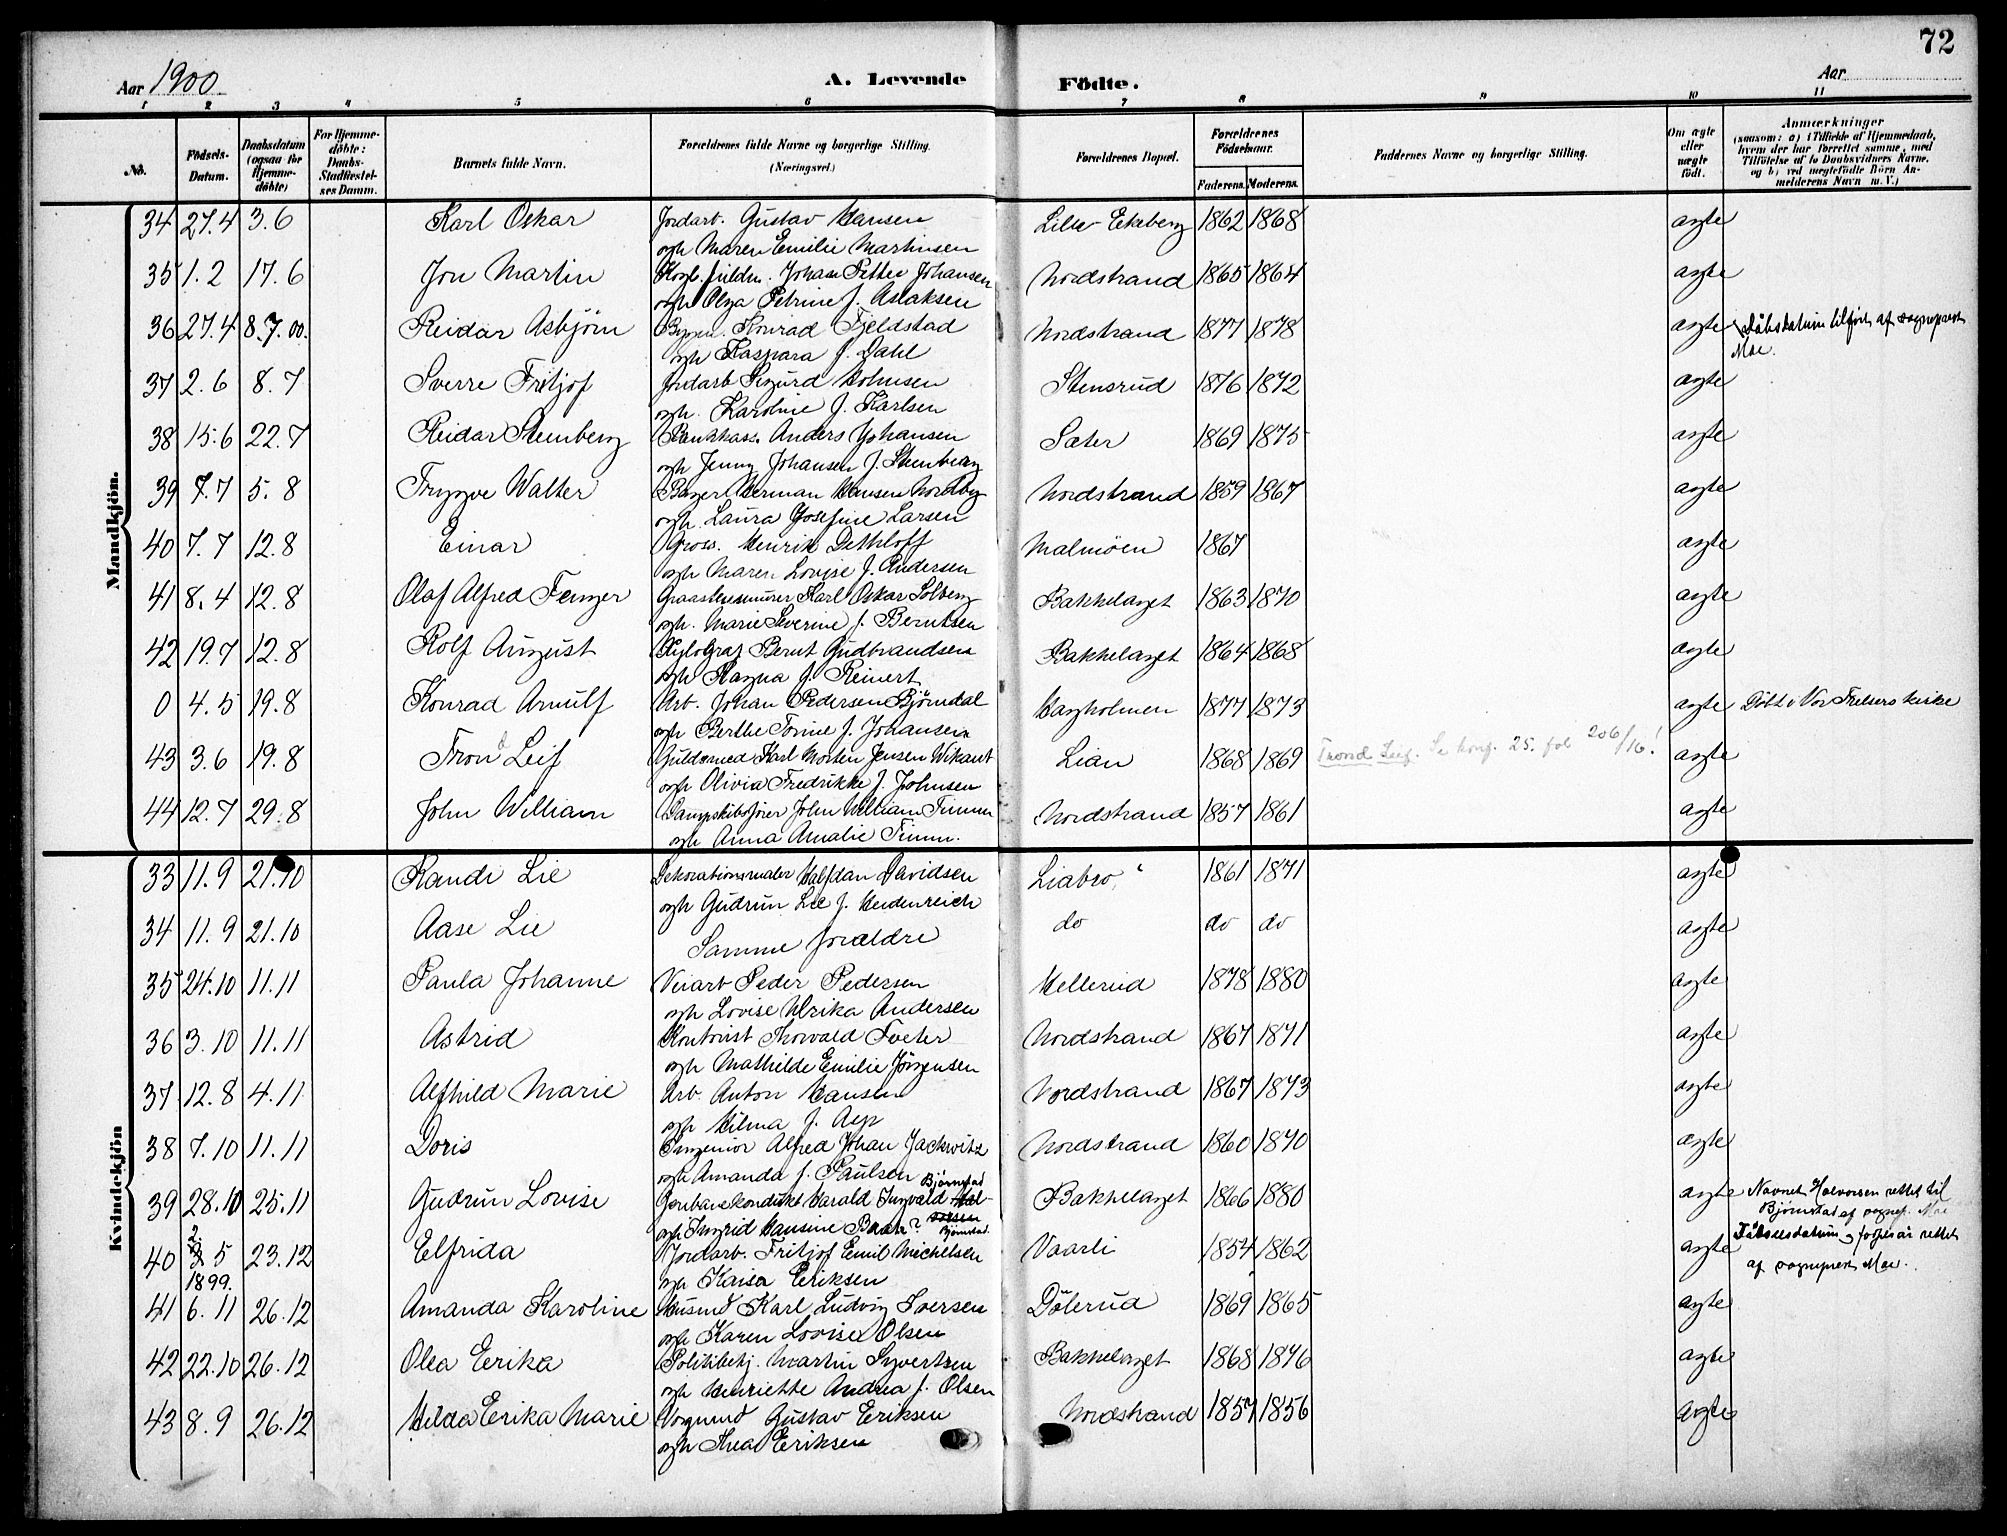 72
Aar 1900.
A. Levende
Födte.
Aar
1 2 3 4 5 6 7 8 9 10 11
No.
Födsels-Datum.
Daabsdatum (ogsaa for Hjemme-döbte)
For Hjemme-döbte: Daabs-Stadfæstel-ses Datum.
Barnets fulde Navn.
Forældrenes fulde Navne og borgerlige Stilling. (Næringsvei.)
Forældrenes Bopæl.
Forældrenes Födselsaar.
Faderens. Moderens.
Faddernes Navne og borgerlige Stilling.
Om ægte eller uægte födt.
Anmærkninger
(saasom: a) i Tilfælde af Hjemmedaab, hvem der har forrettet samme, med Tilföielse af to Daabsvidners Navne. og b) ved uægtefödte Börn An-melderens Navn m. V.)
Mandkjön.
34 27.4 3.6 Karl Oskar Jordarb. Gustav Hansen Lille-Ekeberg 1862 1868 ægte
og h. Maren Emilie Martinsen
35 1.2 17.6 Jon Martin Johan Petter Johansen Nordstrand 1865 1864 ægte
og h. Olga Petrine f. Aslaksen
36 27.4 8.7.00. Reidar Asbjörn Konrad Fjeldstad Nordstrand 1877 1878 ægte Dåbsdatum tilført af sogneprest
og h. Kaspara f. Dahl Moe.
37 2.6 8.7 Sverre Fritjof Jordarb Sigurd Holmsen Stensrud 1876 1872 ægte
og h. Karoline f. Karlsen
38 15.6 22.7 Reidar Stenberg Bankkass. Anders Johansen Sæter 1869 1875 ægte
og h. Jenny Johansen f. Stenberg
39 7.7 5.8 Tryggve Walter Bager Herman Hansen Nordby Nordstrand 1859 1867 ægte
og h. Laura Josefine Larsen
40 7.7 12.8 Einar Gross. Henrik Dethloff Malmöen 1867 ægte
og h. Maren Lovise f. Andersen
41 8.4 12.8 Olaf Alfred Fenger Graastensmurer Karl Oskar Solberg Bækkelaget 1863 1870 ægte
og h. Marie Severine f. Berntsen
42 19.7 12.8 Rolf August Xylograf Bernt Gudbrandsen Bækkelaget 1864 1868 ægte
og h. Ragna f. Reinert
0 4.5 19.8 Konrad Arnulf Arb. Johan Pedersen Björndal Hagholmen 1877 1873 ægte Döbt i Vor Frelsers kirke
og h. Berthe Tonine f. Johansen
43 3.6 19.8 Tron d Leif Guldsmed Karl Morten Jensen Wikant Lian 1868 1869 Trond Leif. Se konf. 25. fol 206/16! ægte
og h. Olivia Fredrikke f. Johnsen
44 12.7 29.8 John William Dampskibsförer John William Timm Nordstrand 1857 1861 ægte
og h. Anna Amalie Timm.
Kvindekjön
33 11.9 21.10 Randi Lie Dekorationsmaler Halfdan Davidsen Liabro 1861 1871 ægte
og h. Gudrun Lie f. Heidenreich
34 11.9 21.10 Aase Lie Samme forældre do do do ægte
35 24.10 11.11 Paula Johanne Veiarb Peder Pedersen Mellerud 1878 1880 ægte
og h. Lovise Ulrika Andersen
36 3.10 11.11 Astrid Kontorist Thorvald Tveter Nordstrand 1867 1871 ægte
og h. Mathilde Emilie Jörgensen
37 12.8 4.11 Alfhild Marie Arb. Anton Hansen Nordstrand 1867 1873 ægte
og h. Hilma f. Asp
38 7.10 11.11 Doris Ingeniör Alfred Johan Jackwitz Nordstrand 1860 1870 ægte
og h. Amanda f. Paulsen
39 28.10 25.11 Gudrun Lovise Harald Ingvald Hal-vorsen Björnstad Bækkelaget 1866 1880 ægte Navnet Halvorsen rettet til
og h. Ingrid Hansine Björnstad Bjørnstad af sognep. Moe
40 2. 5 1899. 23.12 Elfrida Jordarb. Fritjof Emil Michelsen Vaarli 1854 1862 ægte Fødselsdatum og fødselsår rettet
og h. Kaisa Eriksen af sogneprest Moe.
41 6.11 26.12 Amanda Karoline Husmd Karl Ludvig Iversen Dölerud 1869 1865 ægte
og h. Karen Lovise Olsen
42 22.10 26.12 Olea Erika Politibetj. Martin Syvertsen Bækkelaget 1868 1876 ægte
og h. Henriette Andrea f. Olsen
43 8.9 26.12 Hilda Erika Marie Vognmd Gustav Eriksen Nordstrand 1857 1856 ægte
og h. Thea Eriksen